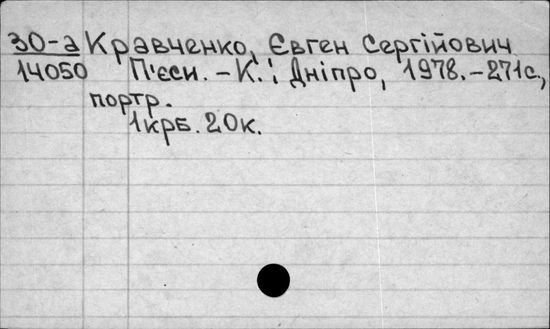 30-а Кравченко, Євген Сергійович
14050 П'єси. – К.: Дніпро, 1978. – 271с.,
портр.
1крб. 20к.